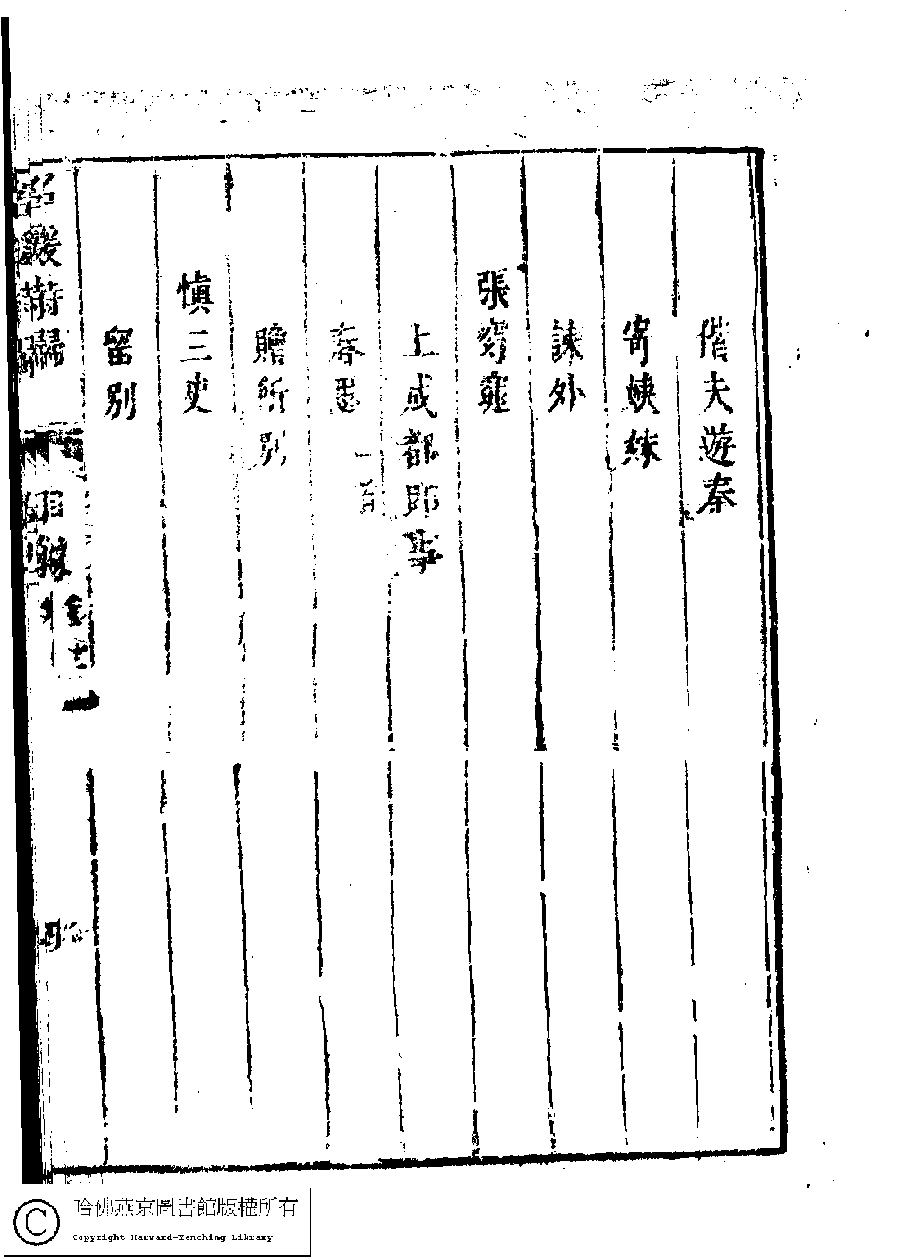 偕夫遊秦
寄姨妹
諫外
張窈窕
上成都即事
春思二首
贈所別
慎三史
留別
名媛詩歸
目錄
四
哈佛燕京圖書館版權所有
Copyright Harvard-Yenching Library